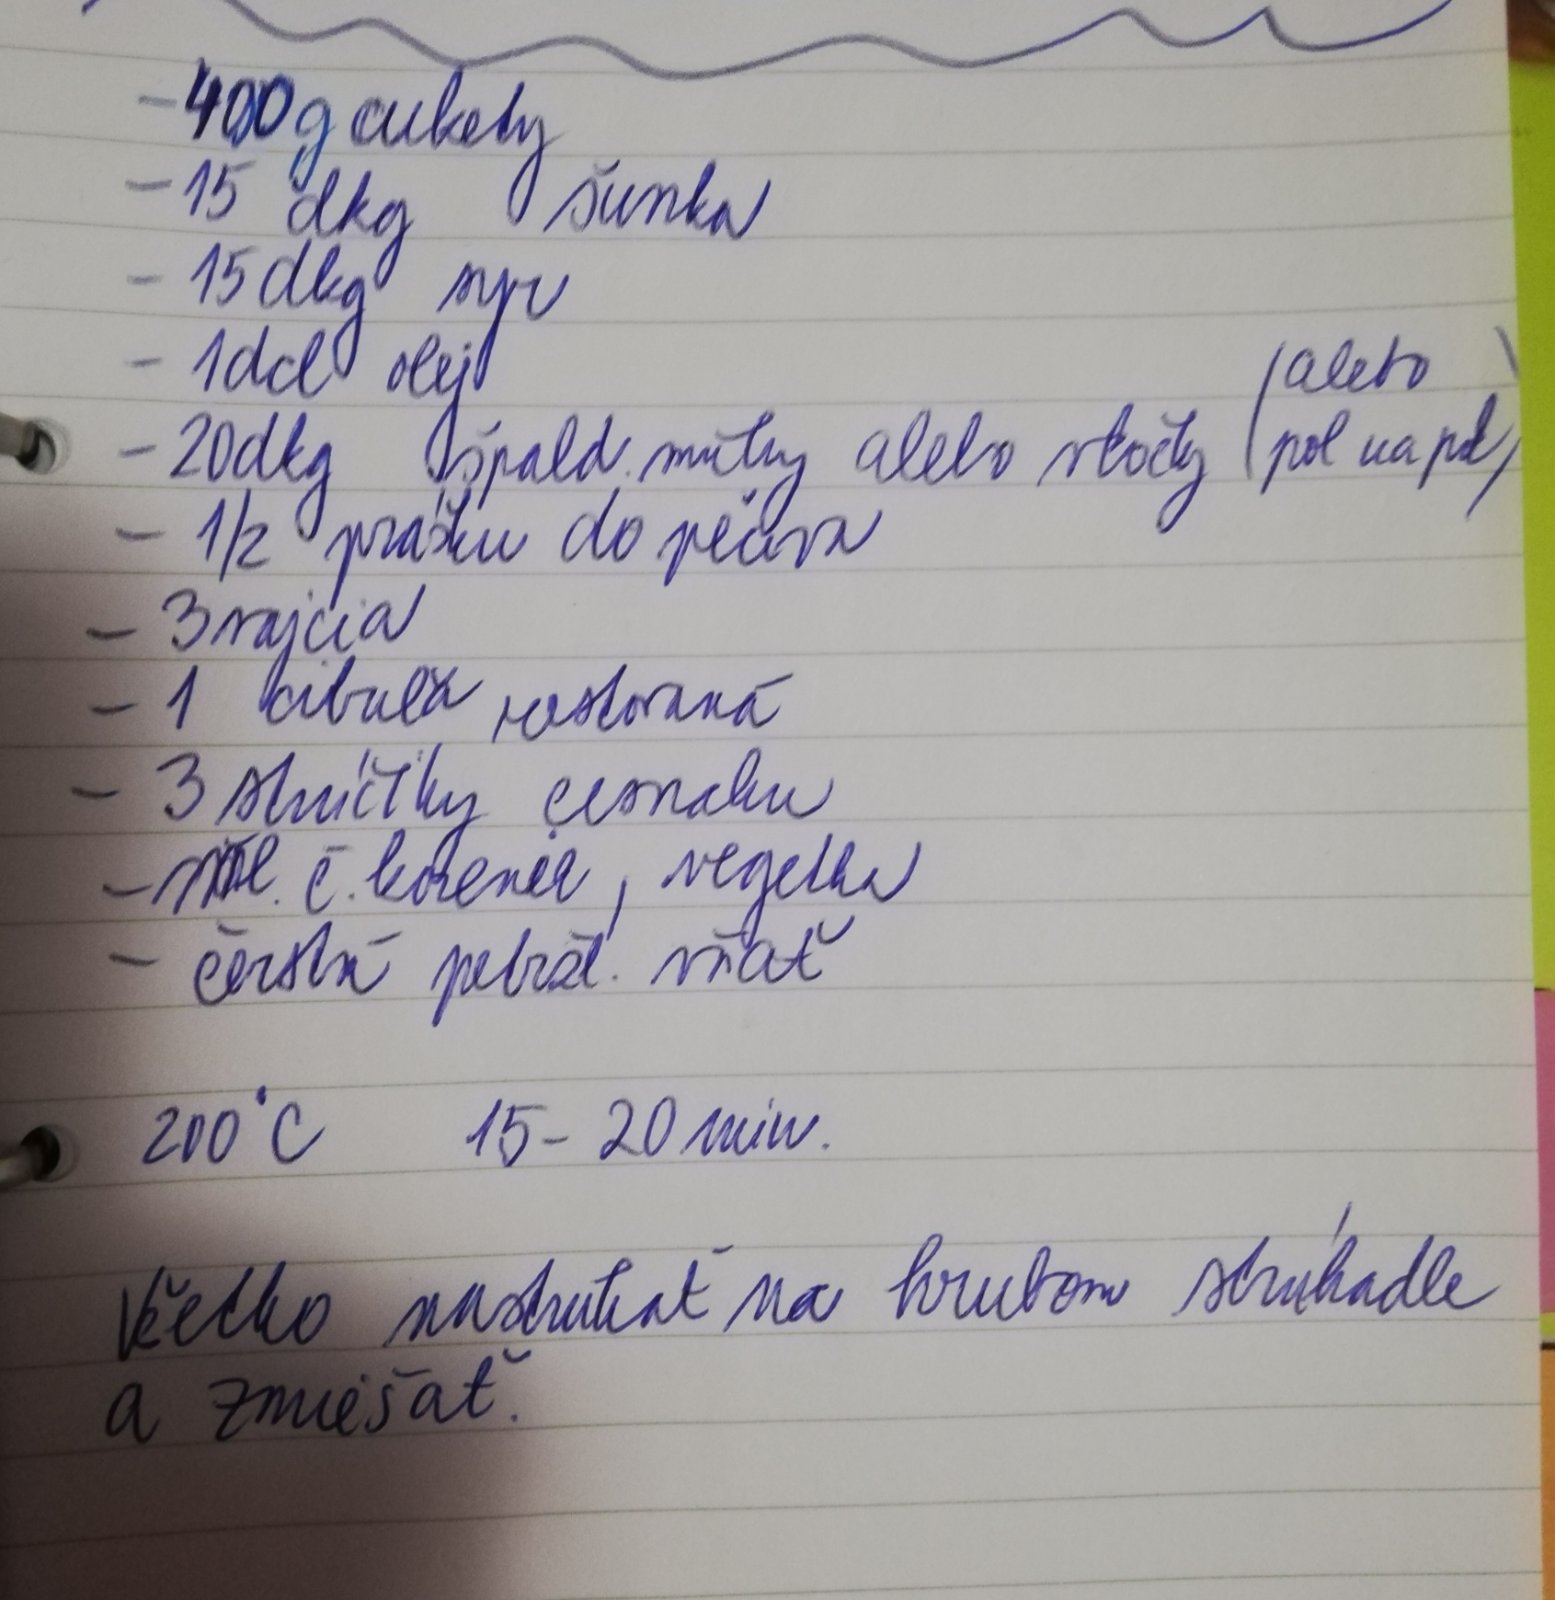 - 400g cukety
- 15 dkg šunka
- 15 dkg syr
- 1 dcl olej
- 20 dkg špald. múky alebo vločky (alebo pol na pol)
- 1/2 prášku do pečiva
- 3 rajčia
- 1 cibuľa restovaná
- 3 strúčiky cesnaku
- ml. č. korenie, vegetka
- čerstvá petržl. vňať
200°C 15-20 min.
Všetko nastrúhať na hrubom strúhadle
a zmiešať.